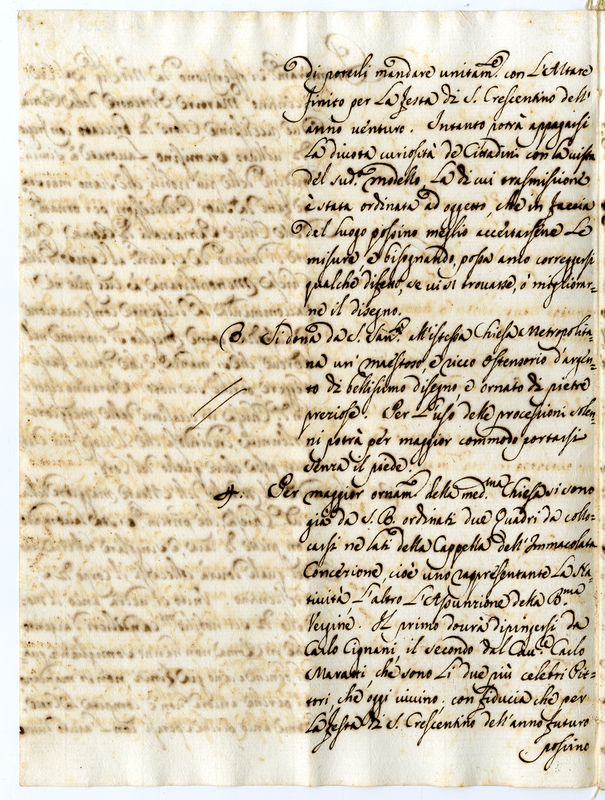 di poterli mandare unitam.te con L'Altare
finito per La festa di S. Crescentino dell'
anno venturo. Intanto potrà appagarsi
La divota curiosità de Cittadini con la vista
del sud.o modello. La di cui trasmissione
è stata ordinata ad oggetto, che in faccia
del luogo possino meglio accertarsene Le
misure e bisognando, possa anco correggersi
qualche difetto, se vi si trovasse, ò migliorar-
ne il disegno.
3. Si dona da S. San.tà all'istessa Chiesa Metropolita-
na un' maestoso, e ricco Ostensorio d'argen-
to di bellissimo disegno e ornato di pietre
preziose. Per L'uso delle processioni solen-
ni potrà per maggior commodo portarsi
senza il piede.
4. Per maggior ornam.to della med.ma Chiesa si sono
già da S. B. ordinati due Quadri da collo-
carsi ne lati della Cappella dell'Immacolata
Concezione, cioè uno rappresentante La Na-
tività L'altro L'Assunzione della B.ma
Vergine. Il primo dovrà dipingersi da
Carlo Cignani, il secondo dal Cav.re Carlo
Maratti, che sono Li due più celebri Pit-
tori, che oggi vivino. con fiducia che per
La festa di S. Crescentino dell'anno futuro
possino